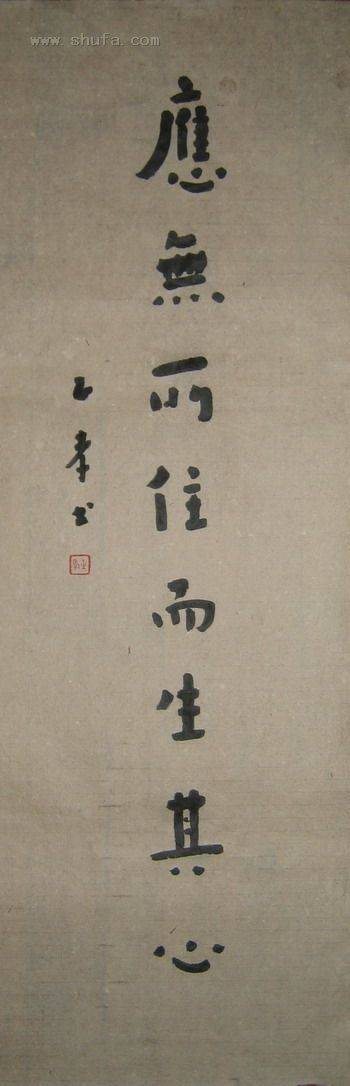 www.shufa.com
應無所住而生其心